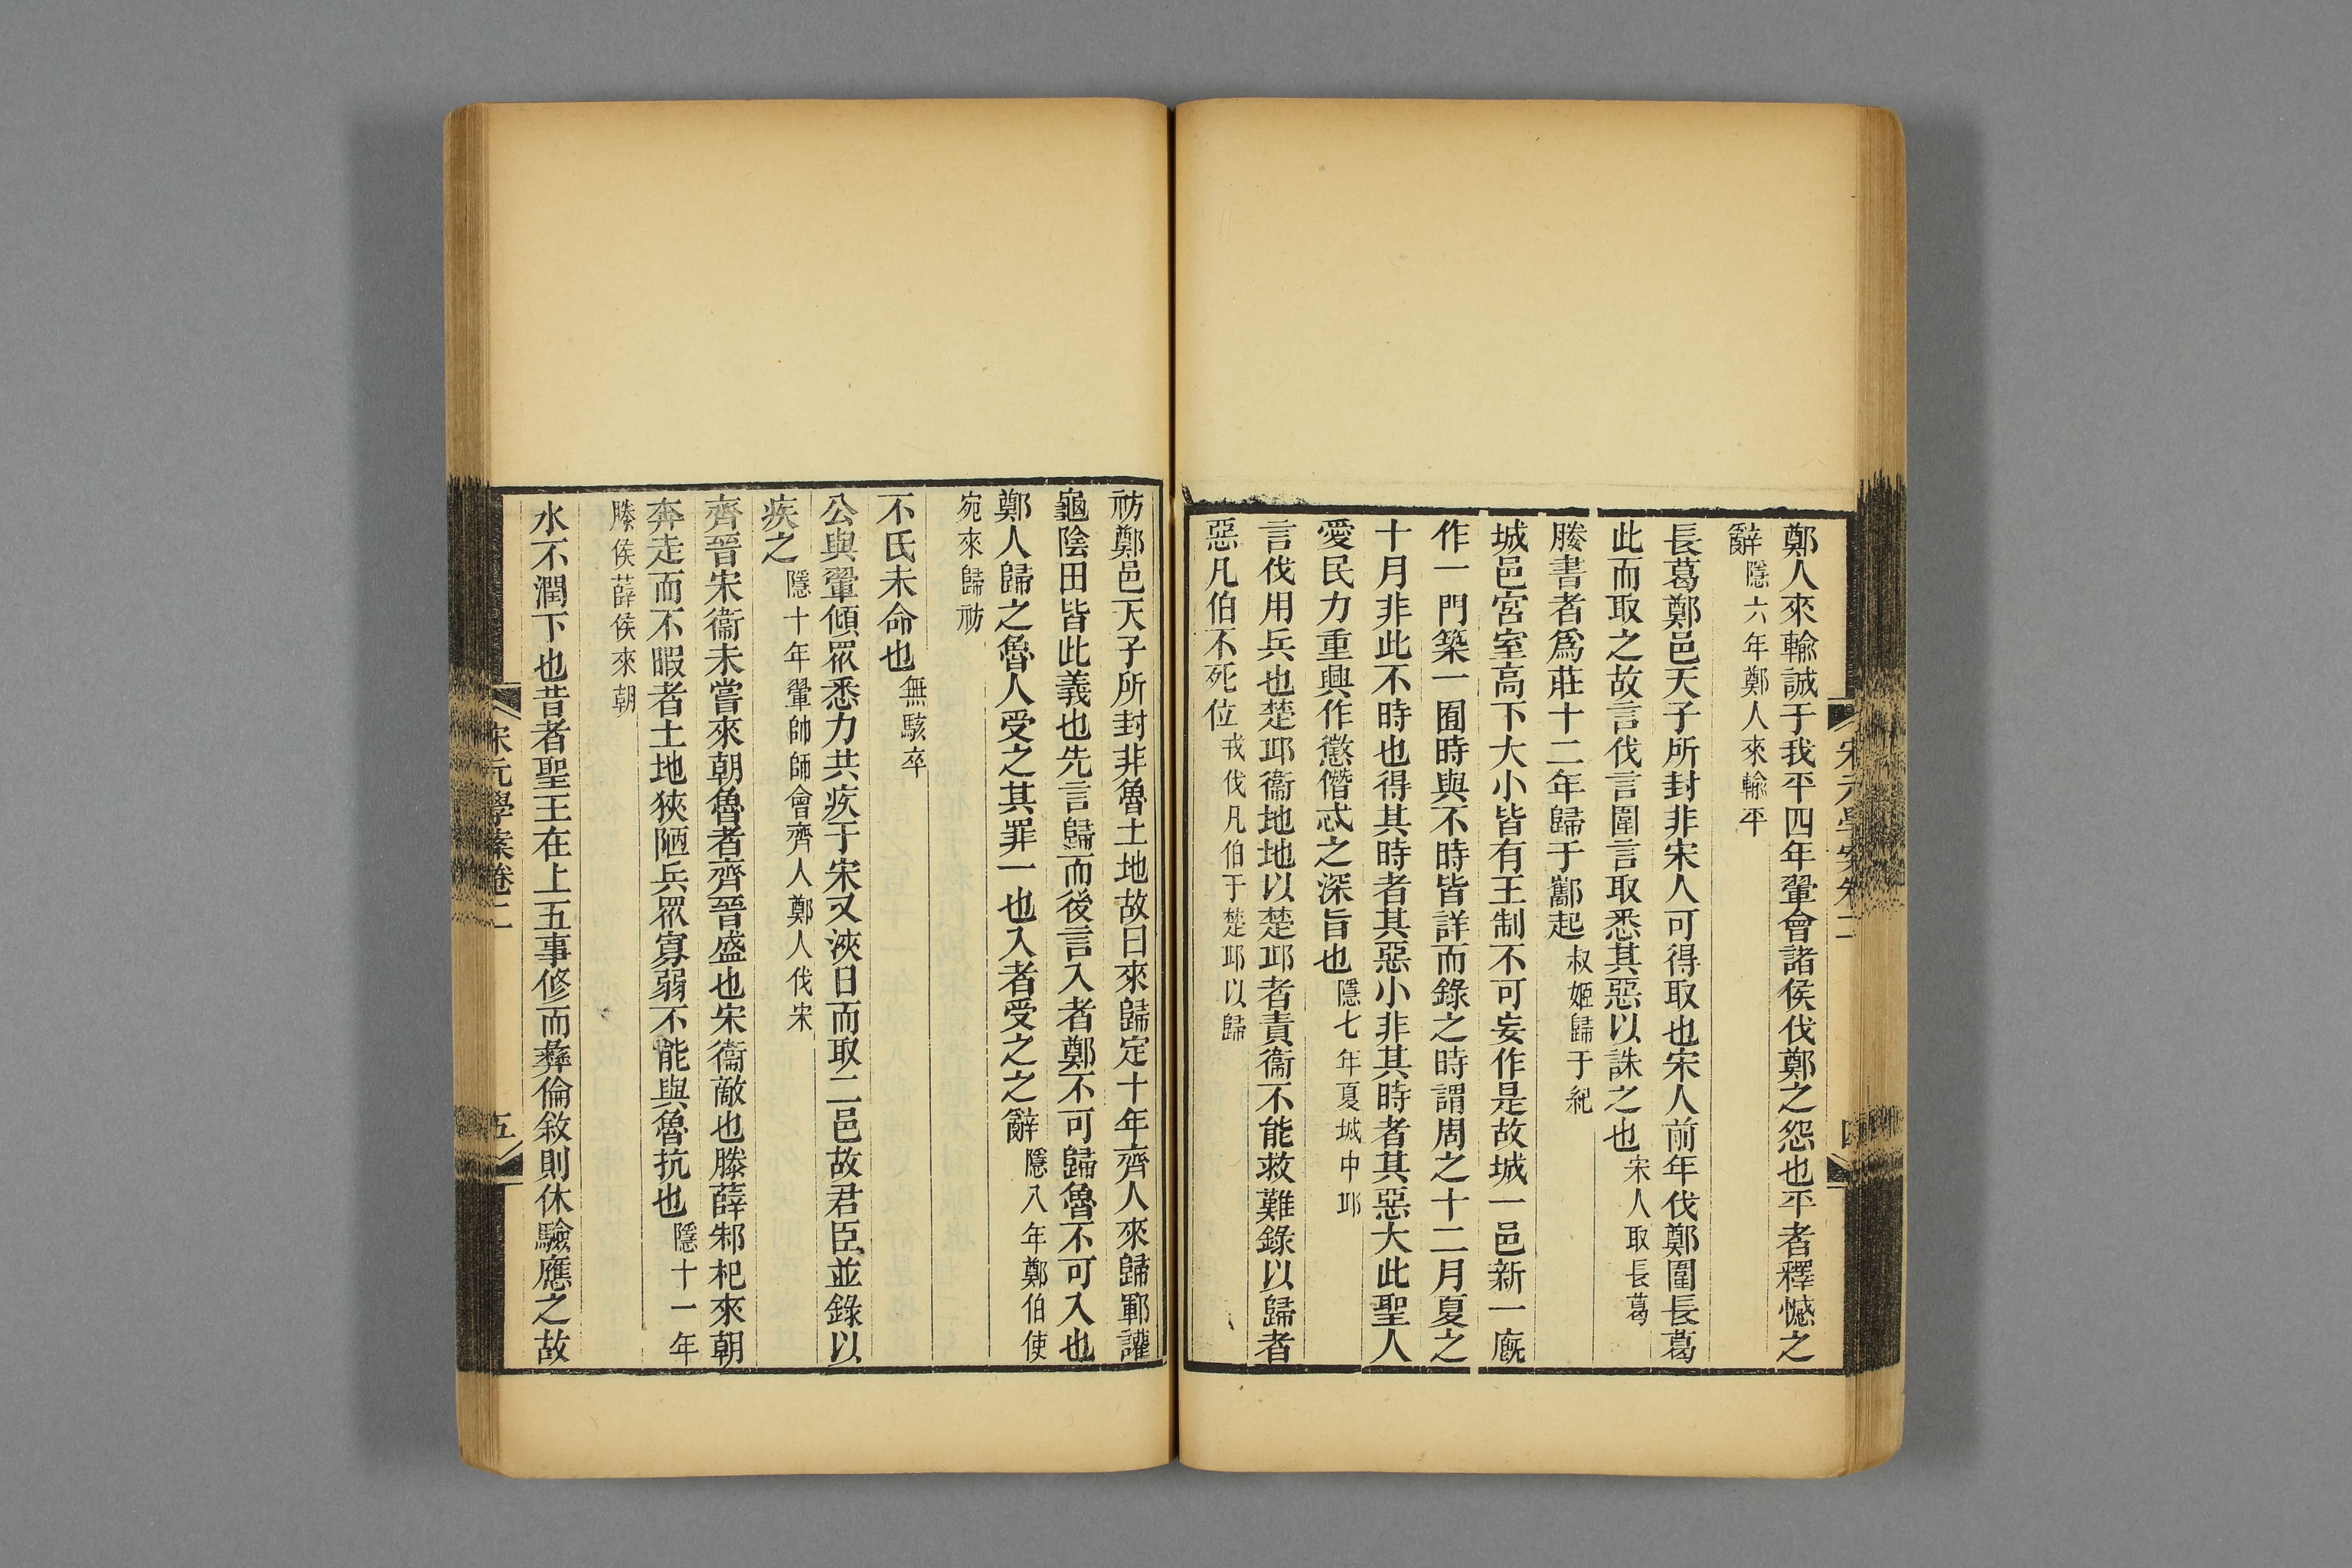 鄭人來輸誠于我平四年翬會諸侯伐鄭之怨也平者釋憾之
辭隱六年鄭人來輸平
長葛鄭邑天子所封非宋人可得取也宋人前年伐鄭圍長葛
此而取之故言伐言圍言取悉其惡以誅之也宋人取長葛
媵書者爲莊十二年歸于酅起叔姬歸于紀
城邑宮室高下大小皆有王制不可妄作是故城一邑新一廐
作一門築一囿時與不時皆詳而錄之時謂周之十二月夏之
十月非此不時也得其時者其惡小非其時者其惡大此聖人
愛民力重興作懲僭忒之深旨也隱七年夏城中邱
言伐用兵也楚邱衞地地以楚邱者責衞不能救難錄以歸者
惡凡伯不死位戎伐凡伯于楚邱以歸
宋元學案卷二
四
祊鄭邑天子所封非魯土地故曰來歸定十年齊人來歸鄆讙
龜陰田皆此義也先言歸而後言入者鄭不可歸魯不可入也
鄭人歸之魯人受之其罪一也入者受之之辭隱八年鄭伯使
宛來歸祊
不氏未命也無駭卒
公與翬傾眾悉力共疾于宋又浹日而取二邑故君臣並錄以
疾之隱十年翬帥師會齊人鄭人伐宋
齊晉宋衞未嘗來朝魯者齊晉盛也宋衞敵也滕薛邾杞來朝
奔走而不暇者土地狹陋兵眾寡弱不能與魯抗也隱十一年
滕侯薛侯來朝
水不潤下也昔者聖王在上五事修而彝倫敘則休驗應之故
宋元學案卷二
五